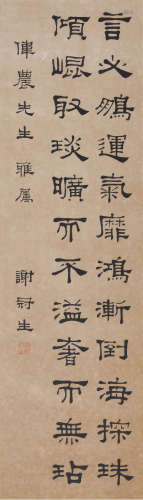 言必鵬運氣靡鴻漸倒海探珠
傾崐取琰曠而不溢奢而無玷
俥農先生雅屬
謝冠生